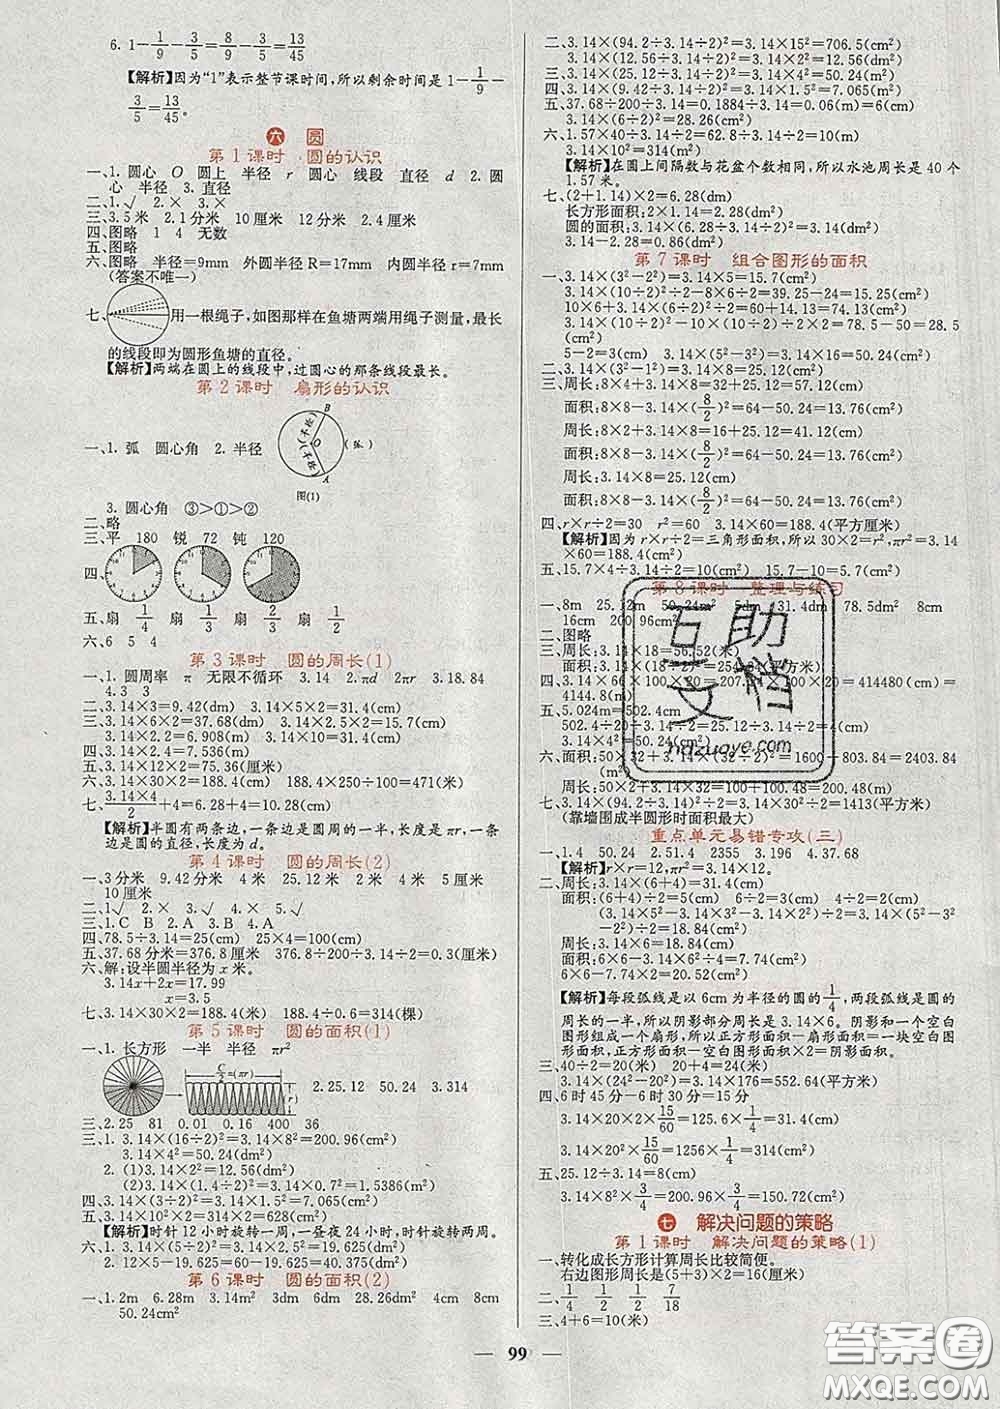 6. 1-1/9-3/5=8/9-3/5=13/45
【解析】因为“1”表示整节课时间,所以剩余时间是 1-1/9-
3/5=13/45。
六 圆
第 1 课时 圆的认识
一、1. 圆心 O 圆上 半径 r 圆心 线段 直径 d 2. 圆
心 半径 3. 直径
二、1.√ 2.× 3.×
三、3.5米 2.1分米 10厘米 12分米 2.4厘米
四、图略 1 4 无数
五、图略
六、图略 半径=9mm 外圆半径 R=17mm 内圆半径 r=7mm
(答案不唯一)
七、用一根绳子,如图那样在鱼塘两端用绳子测量,最长
的线段即为圆形鱼塘的直径。
【解析】两端在圆上的线段中,过圆心的那条线段最长。
第 2 课时 扇形的认识
一、1. 弧 圆心角 2. 半径
B
(半径)
O
(弧)
(半径)
A
图(1)
3. 圆心角 ③>①>②
二、略
三、平 180 锐 72 钝 120
四、
五、扇 1/4 扇 1/3 扇 1/2 扇 2/3
六、6 5 4
第 3 课时 圆的周长(1)
一、1. 圆周率 π 无限不循环 3.14 2. πd 2πr 3. 18.84
4. 3 3
二、3.14×3=9.42(dm) 3.14×5×2=31.4(cm)
三、3.14×6×2=37.68(dm) 3.14×3=9.42(cm)
3.14×2.2=6.908(m) 3.14×10=31.4(cm)
四、3.14×2.4=7.536(m)
五、3.14×12×2=75.36(厘米)
六、3.14×30×2=188.4(cm) 188.4×250÷100=471(米)
七、3.14×4/2+4=6.28+4=10.28(cm)
【解析】半圆有两条边,一条边是圆周的一半,长度是πr,一条
边是圆的直径,长度为 d。
第 4 课时 圆的周长(2)
一、3分米 9.42分米 4米 25.12米 2米 4米 8米
10厘米
二、1.√ 2.× 3.√ 4.× 5.√
三、1. C B 2. A 3. B 4. A
四、78.5÷3.14=25(cm) 25×4=100(cm)
五、37.68分米=376.8厘米 376.8÷200÷3.14÷2=0.3(厘米)
六、解:设半圆半径为 x 米。
3.14x+2x=17.99
x=3.5
七、3.14×30×2=188.4(米) 188.4÷0.6=314(棵)
第 5 课时 圆的面积(1)
一、1. 长方形 一半 半径 πr²
C/2=(πr)
2. 25.12 50.24 3. 314
二、2.25 81 0.01 0.16 400 900
三、1. 3.14×(16÷2)²=3.14×8²=200.96(cm²)
3.14×4²=50.24(dm²)
2. (1)3.14×2²=12.56(dm²)
(2)3.14×(1.4÷2)²=3.14×0.7²=1.5386(m²)
四、3.14×(3÷2)²=3.14×1.5²=7.065(cm²)
五、3.14×10²×2=314×2=628(cm²)
【解析】时针12小时旋转一周,一昼夜24小时,时针旋转两周。
六、1. 3.14×(5÷2)²=3.14×2.5²=19.625(dm²)
2. 12×5-19.625=60-19.625=40.375(dm²)
第 6 课时 圆的面积(2)
一、1.2m 6.28m 3.14m² 3dm 6dm 28.26dm² 4cm 8cm
50.24cm²
二、3.14×(94.2÷3.14÷2)²=3.14×15²=706.5(cm²)
3.14×(12.56÷3.14÷2)²=3.14×2²=12.56(dm²)
三、3.14×(25.12÷3.14÷2)²=3.14×4²=50.24(m²)
四、3.14×(9.42÷3.14÷2)²=3.14×1.5²=7.065(m²)
五、37.68÷200÷3.14=0.1884÷3.14=0.06(m)=6(cm)
3.14×(6÷2)²=28.26(cm²)
六、1.57×40÷3.14÷2=62.8÷3.14÷2=10(m)
3.14×10²=314(m²)
【解析】在圆上间隔数与花盆个数相同,所以水池周长是 40 个
1.57米。
七、(2+1.14)×2=6.28(dm)
长方形面积:2×1.14=2.28(dm²)
圆的面积:3.14×(6.28÷3.14÷2)²=3.14(dm²)
3.14-2.28=0.86(dm²)
第 7 课时 组合图形的面积
一、3.14×(3²-2²)=3.14×5=15.7(cm²)
3.14×(10÷2)²÷2-8×6÷2=39.25-24=15.25(cm²)
10×6+3.14×(6÷2)²÷2=60+14.13=74.13(cm²)
3.14×(10÷2)²-10×(10÷2)÷2×2=78.5-50=28.5
(cm²)
5-2=3(cm) 3.14×(5²-3²)=3.14×16=50.24(cm²)
二、3.14×(3²-1²)=3.14×8=25.12(m²)
三、周长:8×4+3.14×8=32+25.12=57.12(cm)
面积:8×8-3.14×(8/2)²=64-50.24=13.76(cm²)
周长:8×2+3.14×8=16+25.12=41.12(cm)
面积:8×8-3.14×(8/2)²=64-50.24=13.76(cm²)
周长:3.14×8=25.12(cm)
面积:8×8-3.14×(8/2)²=64-50.24=13.76(cm²)
四、r×r÷2=30 r²=60 3.14×60=188.4(平方厘米)
【解析】因为 r×r÷2=三角形面积,所以30×2=r²,πr²=3.14
×60=188.4。
五、15.7×4÷3.14÷2=10(cm) 15.7-10=5.7(cm)
第 8 课时 整理与练习
一、8m 25.12m 50.24m² 5dm 31.4dm 78.5dm² 8cm
16cm 200.96cm²
二、图略
三、周长:3.14×18=56.52(米)
面积:3.14×(18÷2)²=254.34(平方米)
四、3.14×66×100×20=207.24×100×20=414480(cm)=
4144.8(m)
五、5.024m=502.4cm
502.4÷20÷3.14÷2=25.12÷3.14÷2=4(cm)
3.14×4²=50.24(cm²)
六、面积:50×32+3.14×(32÷2)²=1600+803.84=2403.84
(m²)
周长:50×2+3.14×32=100+100.48=200.48(m)
七、3.14×(94.2÷3.14)²÷2=3.14×30²÷2=1413(平方米)
(靠墙围成半圆形时面积最大)
重点单元易错专攻(三)
一、1. 4 50.24 2. 51.4 2355 3. 196 4. 37.68
【解析】r×r=12,πr²=3.14×12。
二、周长:3.14×(6+4)=31.4(cm)
面积:(6+4)÷2=5(cm) 6÷2=3(cm) 4÷2=2(cm)
(3.14×5²-3.14×3²-3.14×2²)÷2=3.14×(5²-3²
-2²)÷2=18.84(cm²)
周长:3.14×6=18.84(cm)
面积:6×6-3.14×6²÷4=7.74(cm²)
6×6-7.74×2=20.52(cm²)
【解析】每段弧线是以 6cm 为半径的圆的1/4,两段弧线是圆的
周长的一半,所以阴影部分周长是 3.14×6。阴影和一个空白
图形组成一个扇形,所以正方形面积-扇形面积=一块空白图
形面积,正方形面积-空白图形面积×2=阴影面积。
三、40÷2=20(m) 20+4=24(米)
3.14×(24²-20²)=3.14×176=552.64(平方米)
四、6时45分-6时30分=15分
3.14×20×2×15/60=125.6×1/4=31.4(cm)
3.14×20²×15/60=1256×1/4=314(cm²)
五、25.12÷3.14=8(cm)
3.14×8²×3/4=200.96×3/4=150.72(cm²)
七 解决问题的策略
第 1 课时 解决问题的策略(1)
一、转化成长方形计算周长比较简便。
右边图形周长是(5+3)×2=16(厘米)
二、1/4 1/2 1/2 7/18
三、4+6=10(米)
99
互助文档
hdzuoye.com
答案圈
MXQE.COM